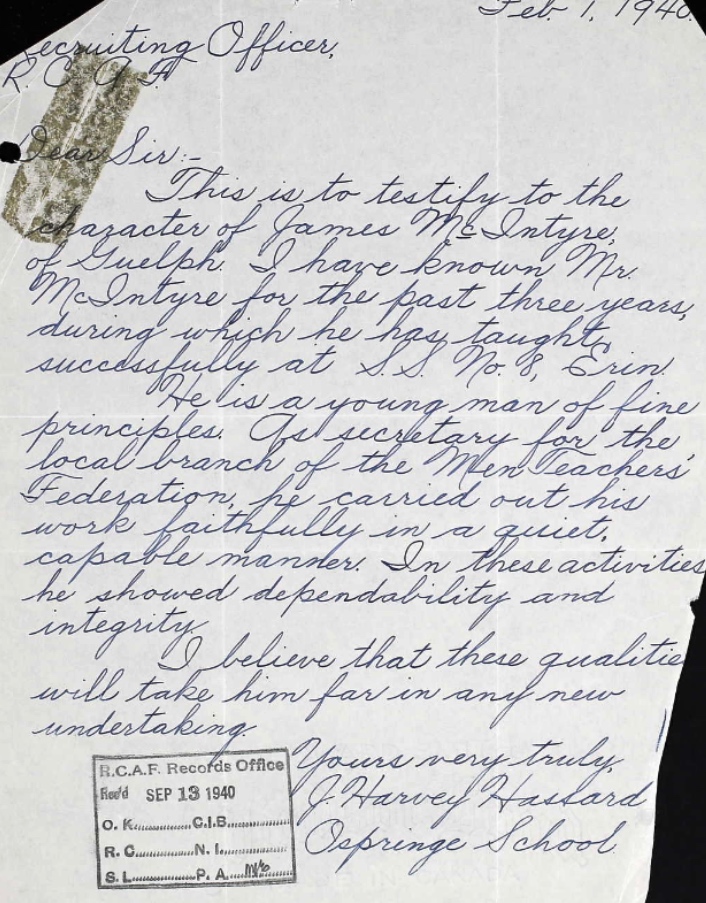 Feb 1, 1940.
Recruiting Officer,
R. C. A. F.
Dear Sir:-
This is to testify to the
character of James McIntyre,
of Guelph. I have known Mr.
McIntyre for the past three years,
during which he has taught
successfully at S.S. No. 8, Erin.
He is a young man of fine
principles. As secretary for the
local branch of the Men Teachers'
Federation, he carried out his
work faithfully in a quiet,
capable manner. In these activities
he showed dependability and
integrity.
I believe that these qualitie
will take him far in any new
undertaking.
Yours very truly,
J. Harvey Hassard
Ospringe School
R.C.A.F. Records Office
Rec'd SEP 13 1940
O. K.............C.I.B.............
R. C.............N. I.............
S. L.............P. A.............